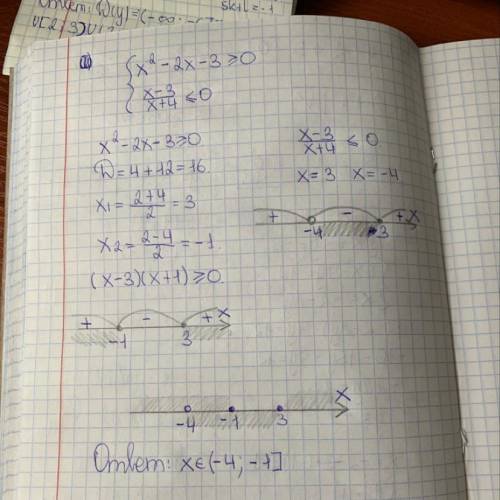 Ответ: D(y)=(-∞;
∪[2; 3)∪(
5k+l=-1
{ x² - 2x - 3 ≥ 0
{ x-3/x+4 ≤ 0
x² - 2x - 3 ≥ 0
D = 4 + 12 = 16
x1 = 2+4/2 = 3
x2 = 2-4/2 = -1
(x-3)(x+1) ≥ 0
+ - + x
-1 3
x-3/x+4 ≤ 0
x = 3 x = -4
+ - + x
-4 3
x
-4 -1 3
Ответ: x∈(-4; -1]